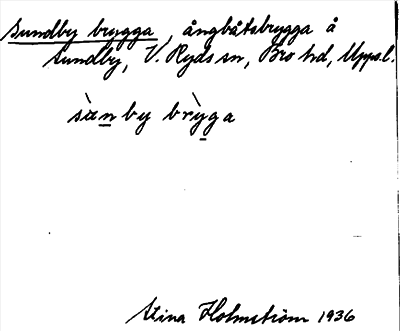 Sundby brygga, ångbåtsbrygga å
Sundby, V. Ryds sn, Bro hd, Upps.l.
sànby brỳga
Stina Holmström 1936